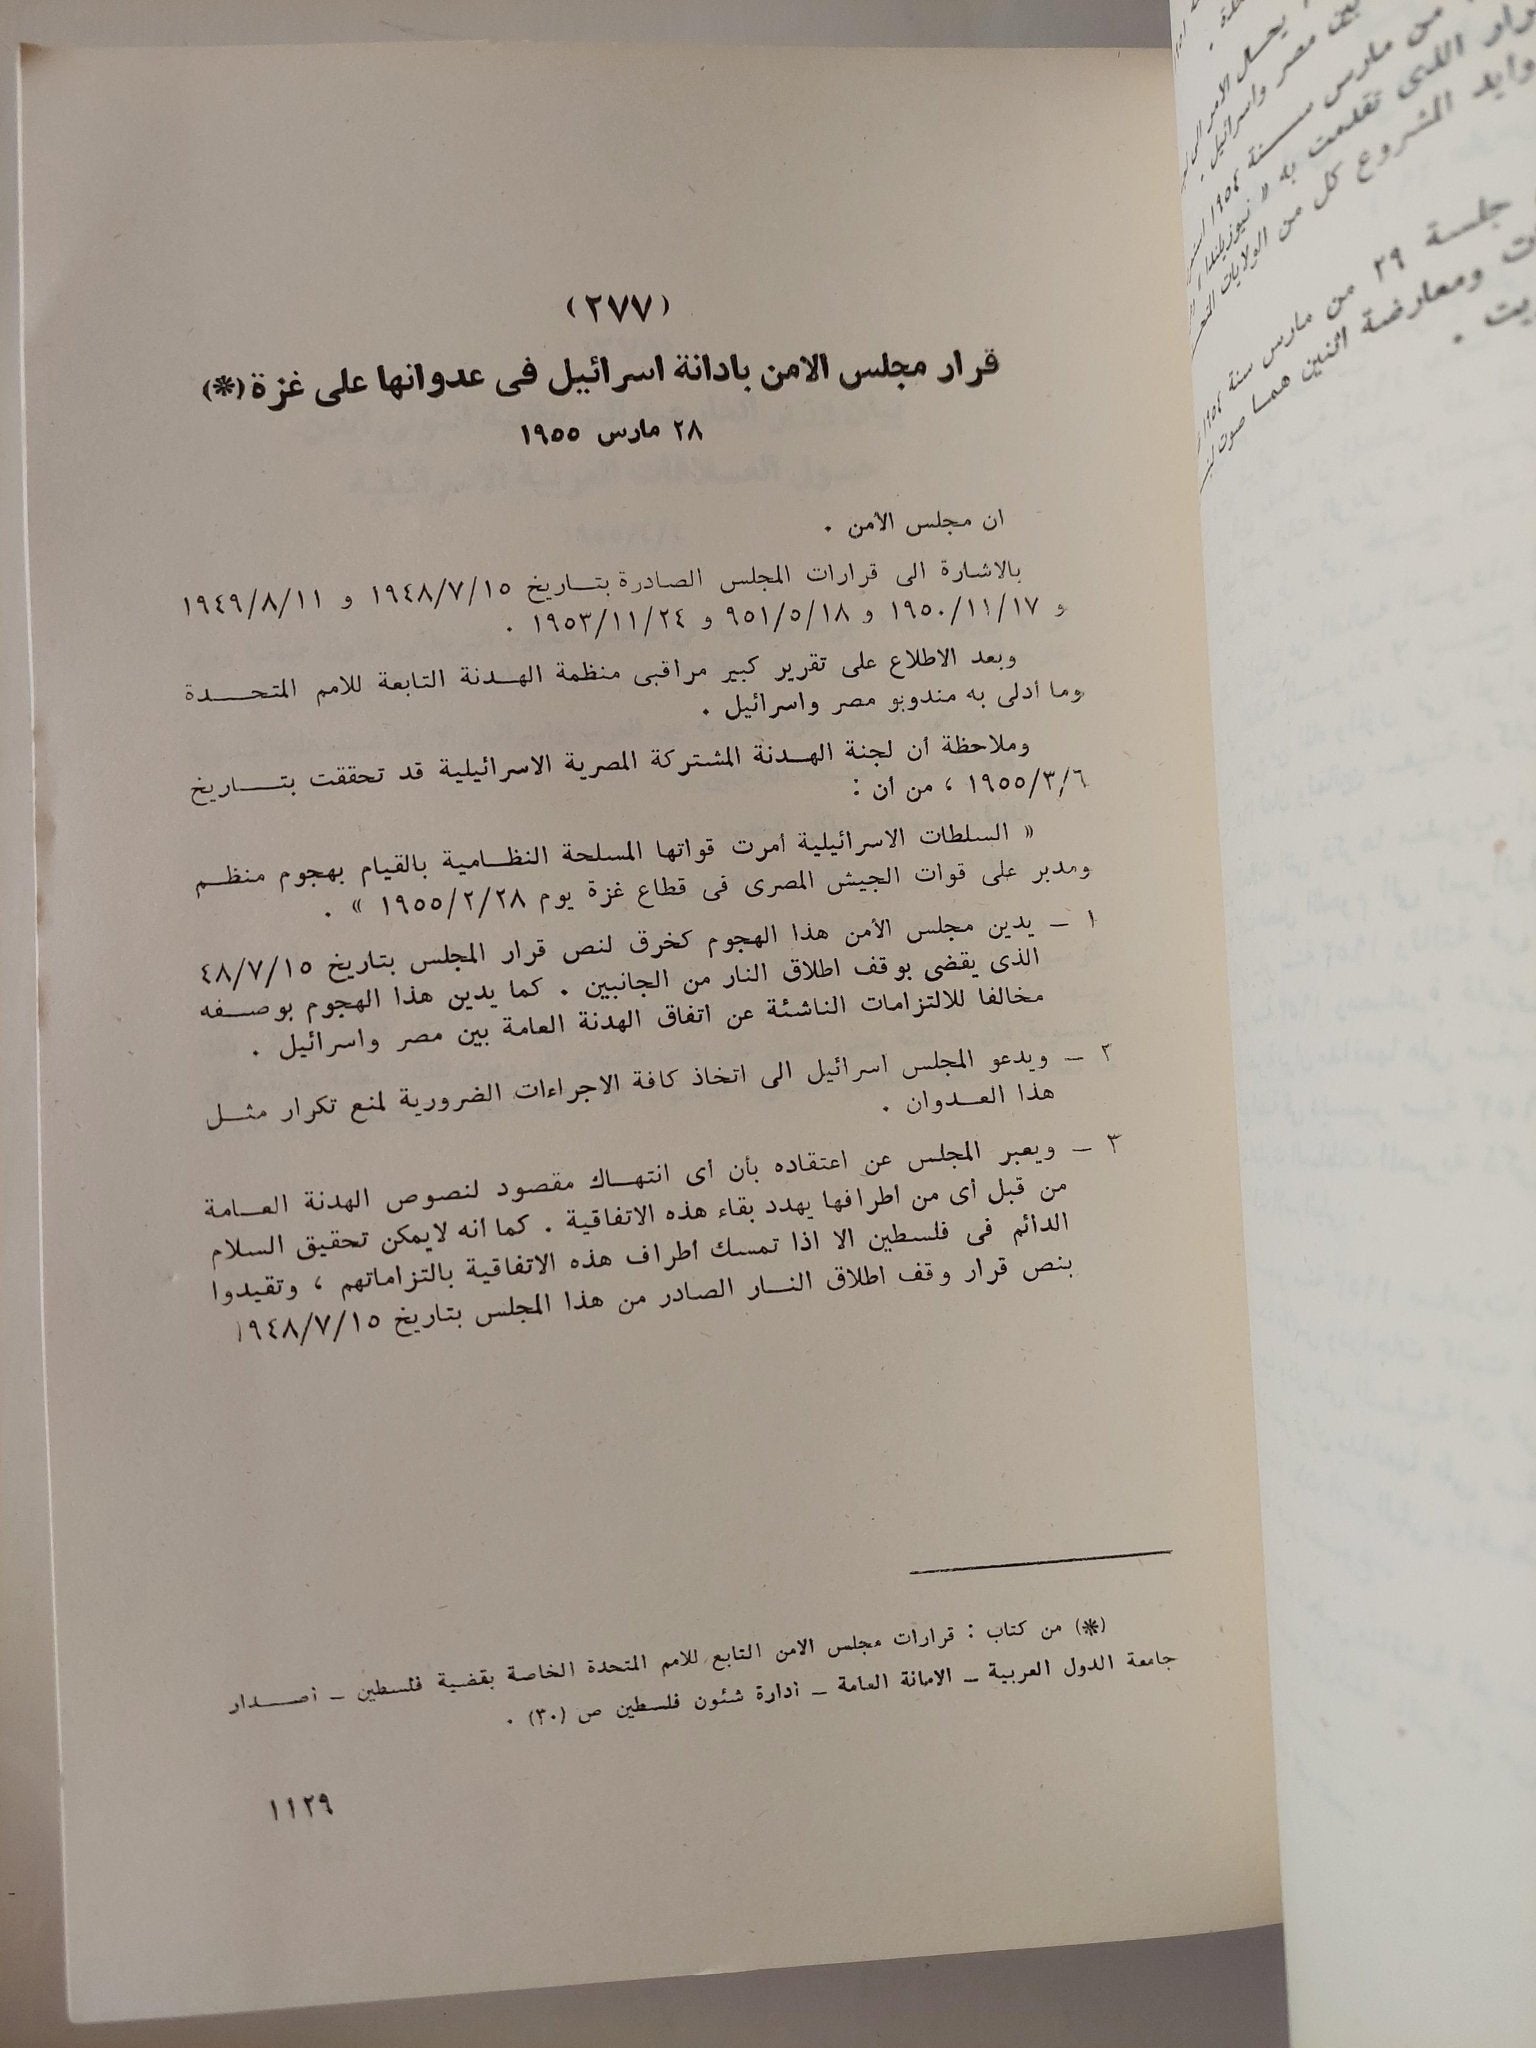 (٢٧٧)
قرار مجلس الامن بادانة اسرائيل فى عدوانها على غزة (*)
٢٨ مارس ١٩٥٥
ان مجلس الأمن .
بالاشارة الى قرارات المجلس الصادرة بتاريخ ١٩٤٨/٧/١٥ و ١٩٤٩/٨/١١
و ١٩٥٠/١١/١٧ و ٩٥١/٥/١٨ و ١٩٥٣/١١/٢٤ .
وبعد الاطلاع على تقرير كبير مراقبى منظمة الهدنة التابعة للامم المتحدة
وما أدلى به مندوبو مصر واسرائيل .
وملاحظة أن لجنة الهدنة المشتركة المصرية الاسرائيلية قد تحققت بتاريخ
١٩٥٥/٣/٦ ، من أن :
« السلطات الاسرائيلية أمرت قواتها المسلحة النظامية بالقيام بهجوم منظم
ومدبر على قوات الجيش المصرى فى قطاع غزة يوم ١٩٥٥/٢/٢٨ » .
١ – يدين مجلس الأمن هذا الهجوم كخرق لنص قرار المجلس بتاريخ ٤٨/٧/١٥
الذى يقضى بوقف اطلاق النار من الجانبين . كما يدين هذا الهجوم بوصفه
مخالفا للالتزامات الناشئة عن اتفاق الهدنة العامة بين مصر واسرائيل .
٢ – ويدعو المجلس اسرائيل الى اتخاذ كافة الاجراءات الضرورية لمنع تكرار مثل
هذا العدوان .
٣ – ويعبر المجلس عن اعتقاده بأن أى انتهاك مقصود لنصوص الهدنة العامة
من قبل أى من أطرافها يهدد بقاء هذه الاتفاقية . كما أنه لايمكن تحقيق السلام
الدائم فى فلسطين الا اذا تمسك أطراف هذه الاتفاقية بالتزاماتهم ، وتقيدوا
بنص قرار وقف اطلاق النار الصادر من هذا المجلس بتاريخ ١٩٤٨/٧/١٥
(*) من كتاب : قرارات مجلس الامن التابع للامم المتحدة الخاصة بقضية فلسطين – أصدار
جامعة الدول العربية – الامانة العامة – أدارة شئون فلسطين ص (٣٠) .
١١٢٩
يحل الامر الى
بين مصر واسرائيل .
من مارس سنة ١٩٥٤
الذى تقدمت به « نيوزيلندا »
وايد المشروع كل من الولايات
جلسة ٢٩ من مارس سنة ١٩٥٤
ومعارضة اثنين هما صوت